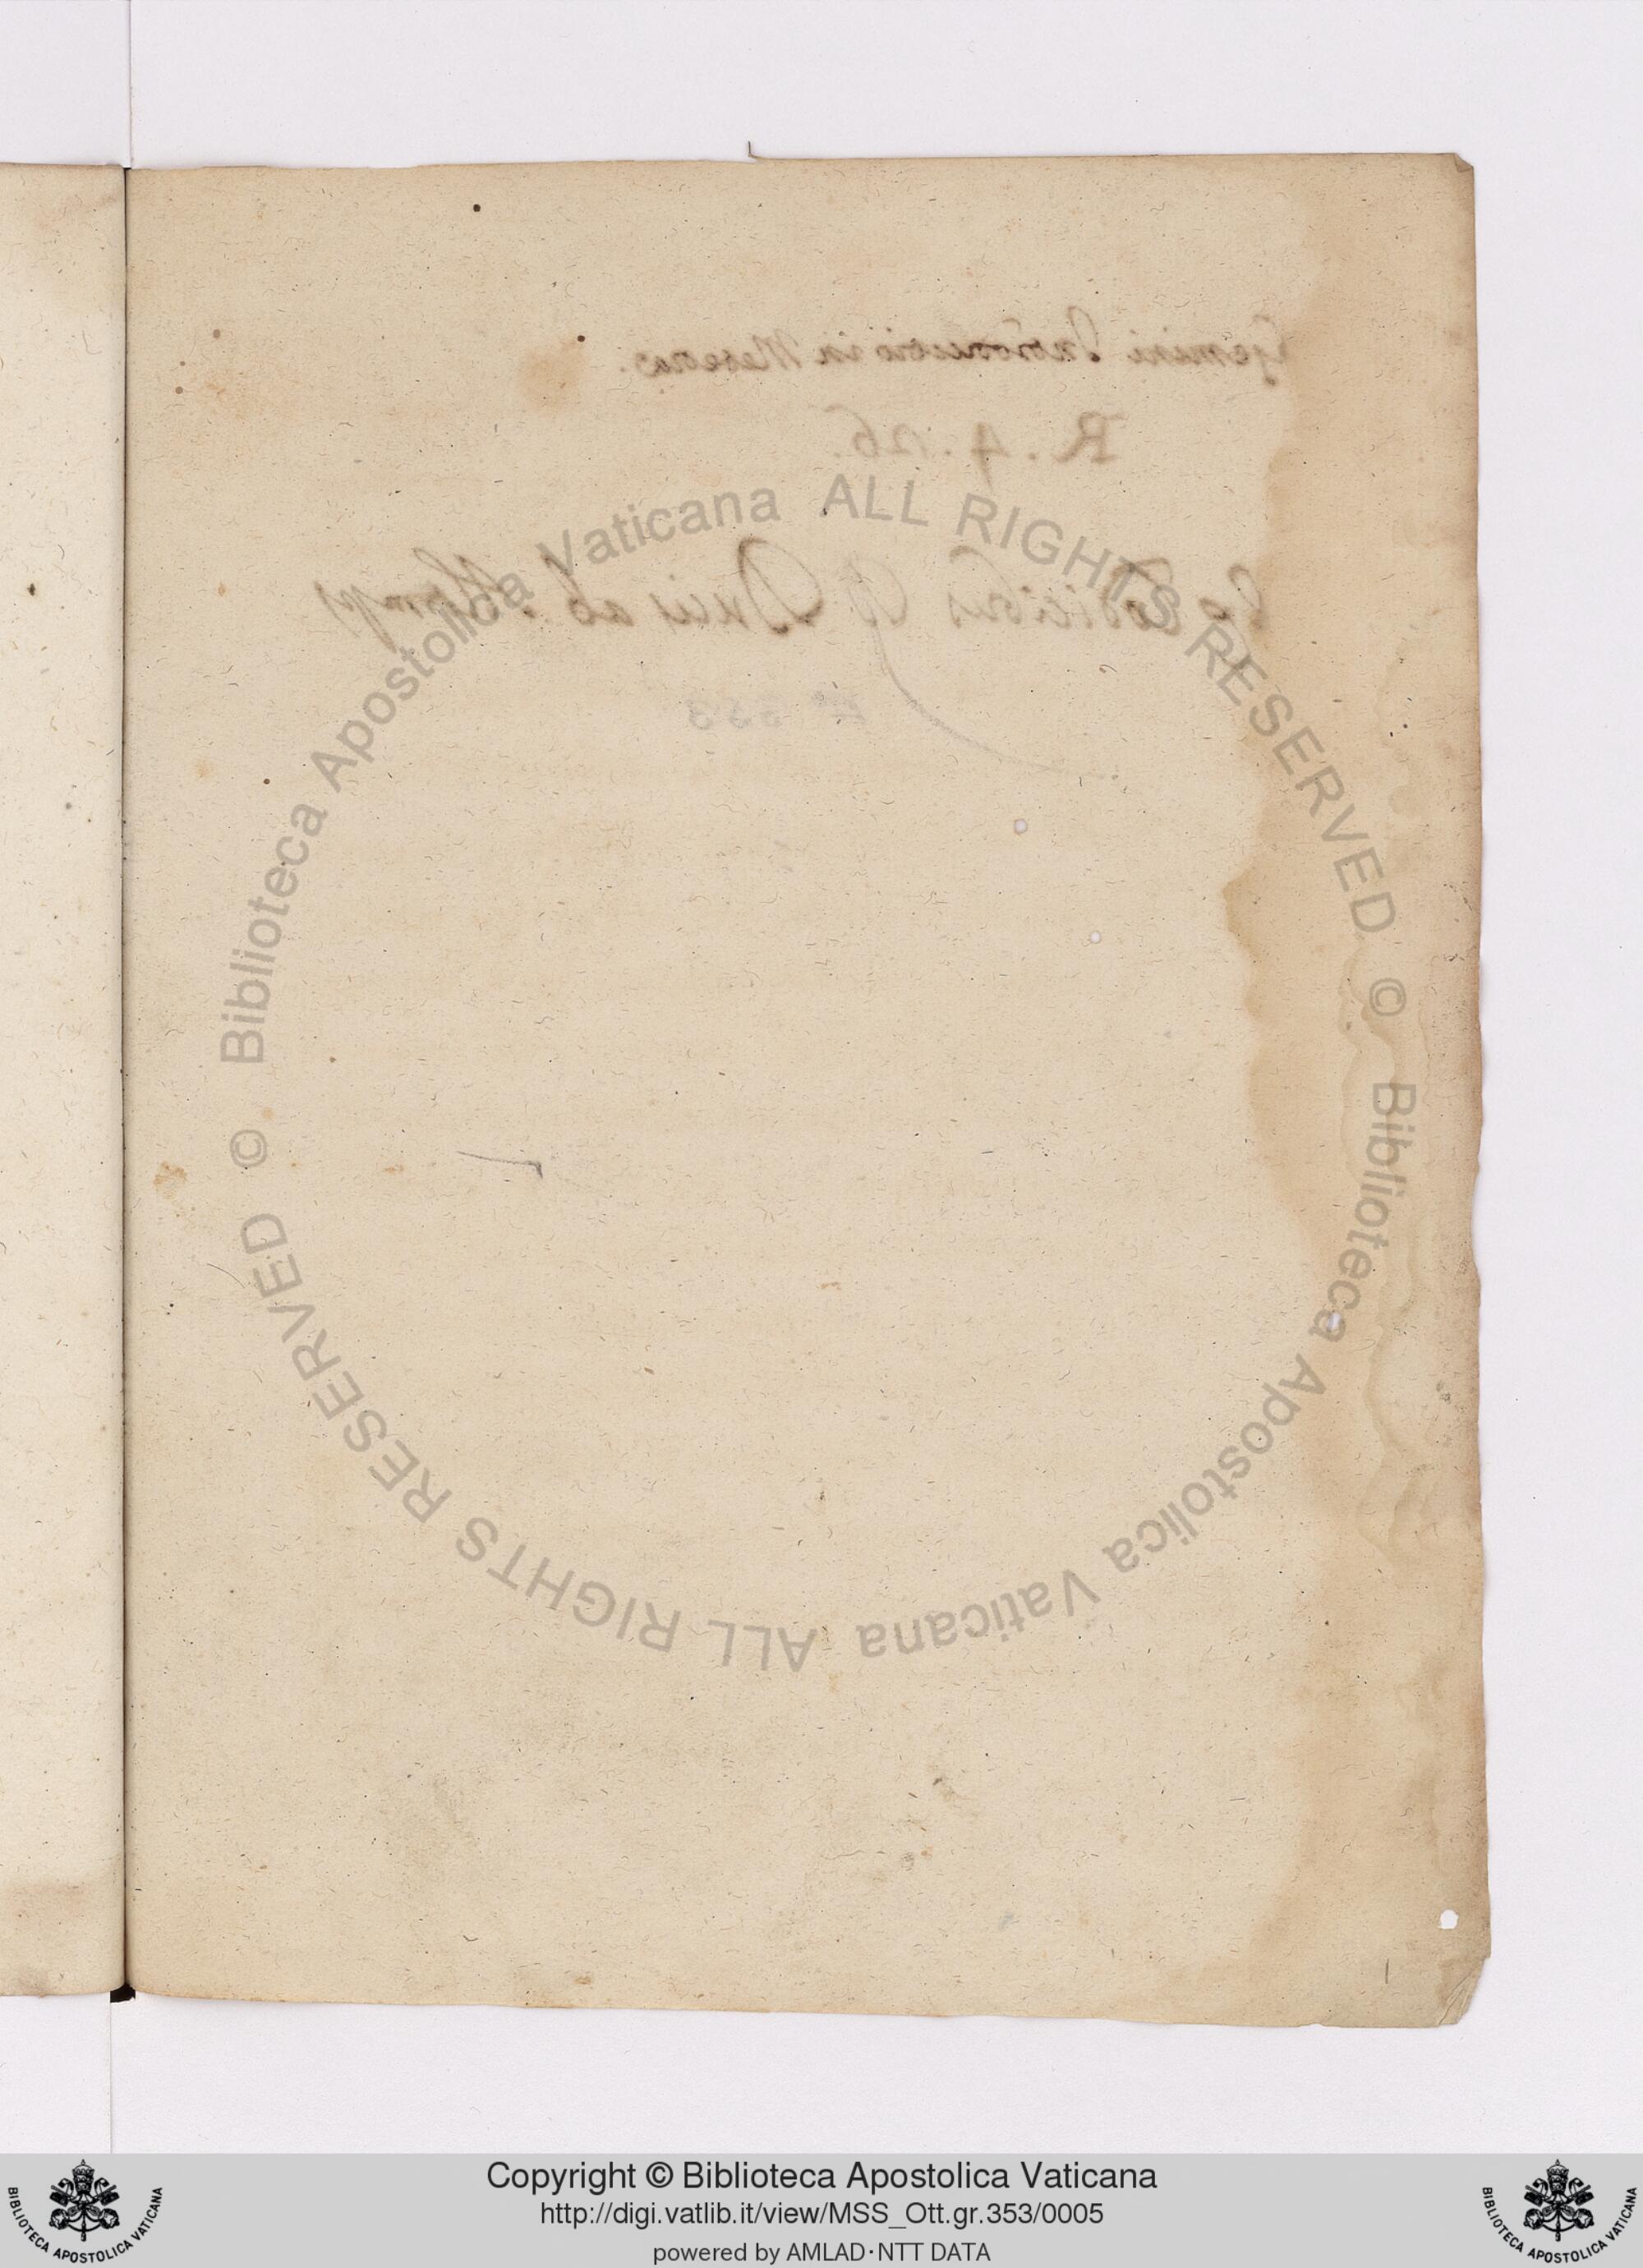 Gemini Introductio in Meteora.
R. 4. 26.
Ex Codicibus
Ducis ab Altemps
353
Biblioteca Apostolica Vaticana ALL RIGHTS RESERVED ©
Biblioteca Apostolica Vaticana ALL RIGHTS RESERVED ©
1
Copyright © Biblioteca Apostolica Vaticana
http://digi.vatlib.it/view/MSS_Ott.gr.353/0005
powered by AMLAD·NTT DATA
BIBLIOTECA APOSTOLICA VATICANA
BIBLIOTECA APOSTOLICA VATICANA